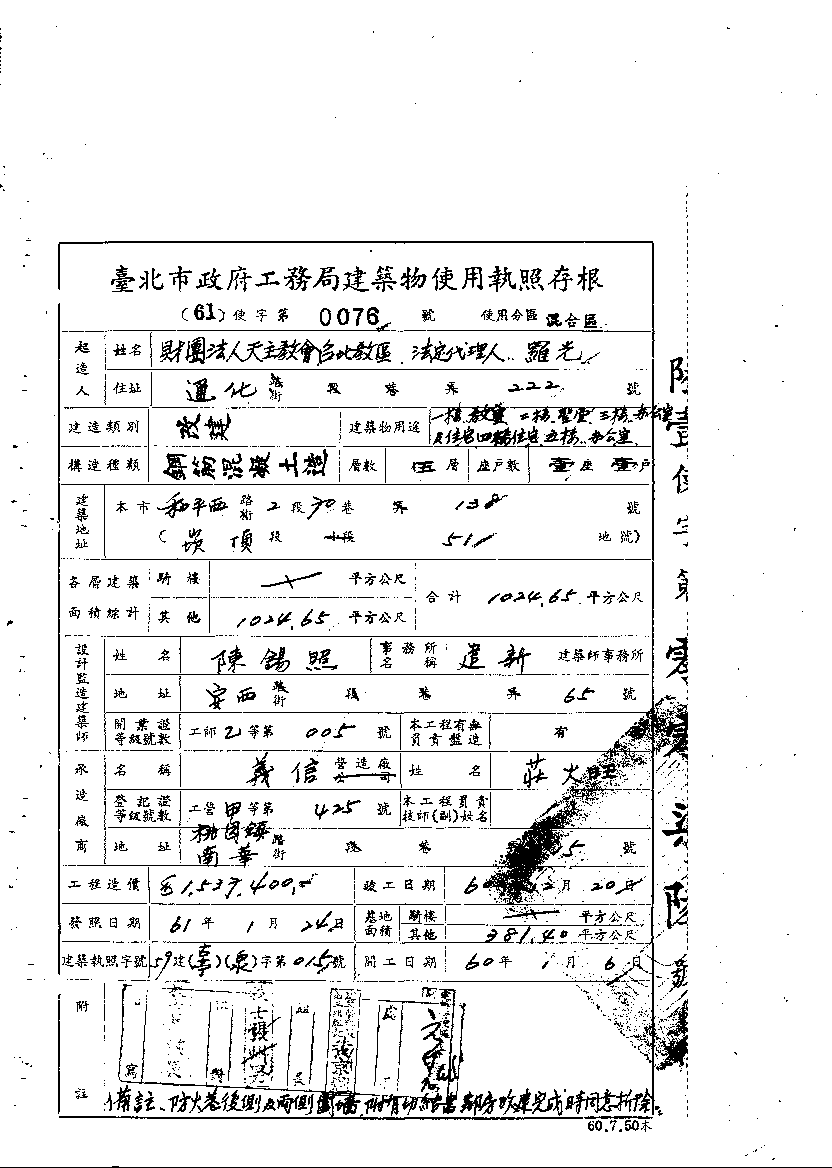 臺北市政府工務局建築物使用執照存根
(61)使字第 0076 號 使用分區 混合區
起造人 姓名 財團法人天主教會台北教區 法定代理人 羅光
住址 通化 路街 段 巷 弄 222 號
建造類別 改建 建築物用途 一樓教堂 二樓聖堂 三樓辦公室及住宅四樓住宅五樓辦公室
構造種類 鋼筋混凝土造 層數 伍層 座戶數 壹座 壹戶
建築地址 本市 和平西 路街 2段 70巷 弄 138 號
(崁頂段 小段 511 地號)
各層建築面積綜計 騎樓 平方公尺 合計 1024.65 平方公尺
其他 1024.65 平方公尺
設計監造建築師 姓名 陳錫照 事務所名稱 建新 建築師事務所
地址 安西 路街 段 巷 弄 65 號
開業證等級號數 工師 乙等第 005 號 本工程有無負責監造 有
承造廠商 名稱 義信 營造廠公司 姓名 莊火旺
登記證等級號數 工營 甲等第 425 號 本工程負責技師(副)姓名
地址 桃園鎮南華 路街 段 巷 號
工程造價 1,537,400 竣工日期 60年12月20日
發照日期 61年1月24日 基地面積 騎樓 平方公尺
其他 381.40 平方公尺
建築執照字號 59建( )( )字第015號 開工日期 60年1月6日
附註
備註、防火巷後側及兩側圍墻 附有切結書鄰房改建完成時同意拆除。
60.7.50本